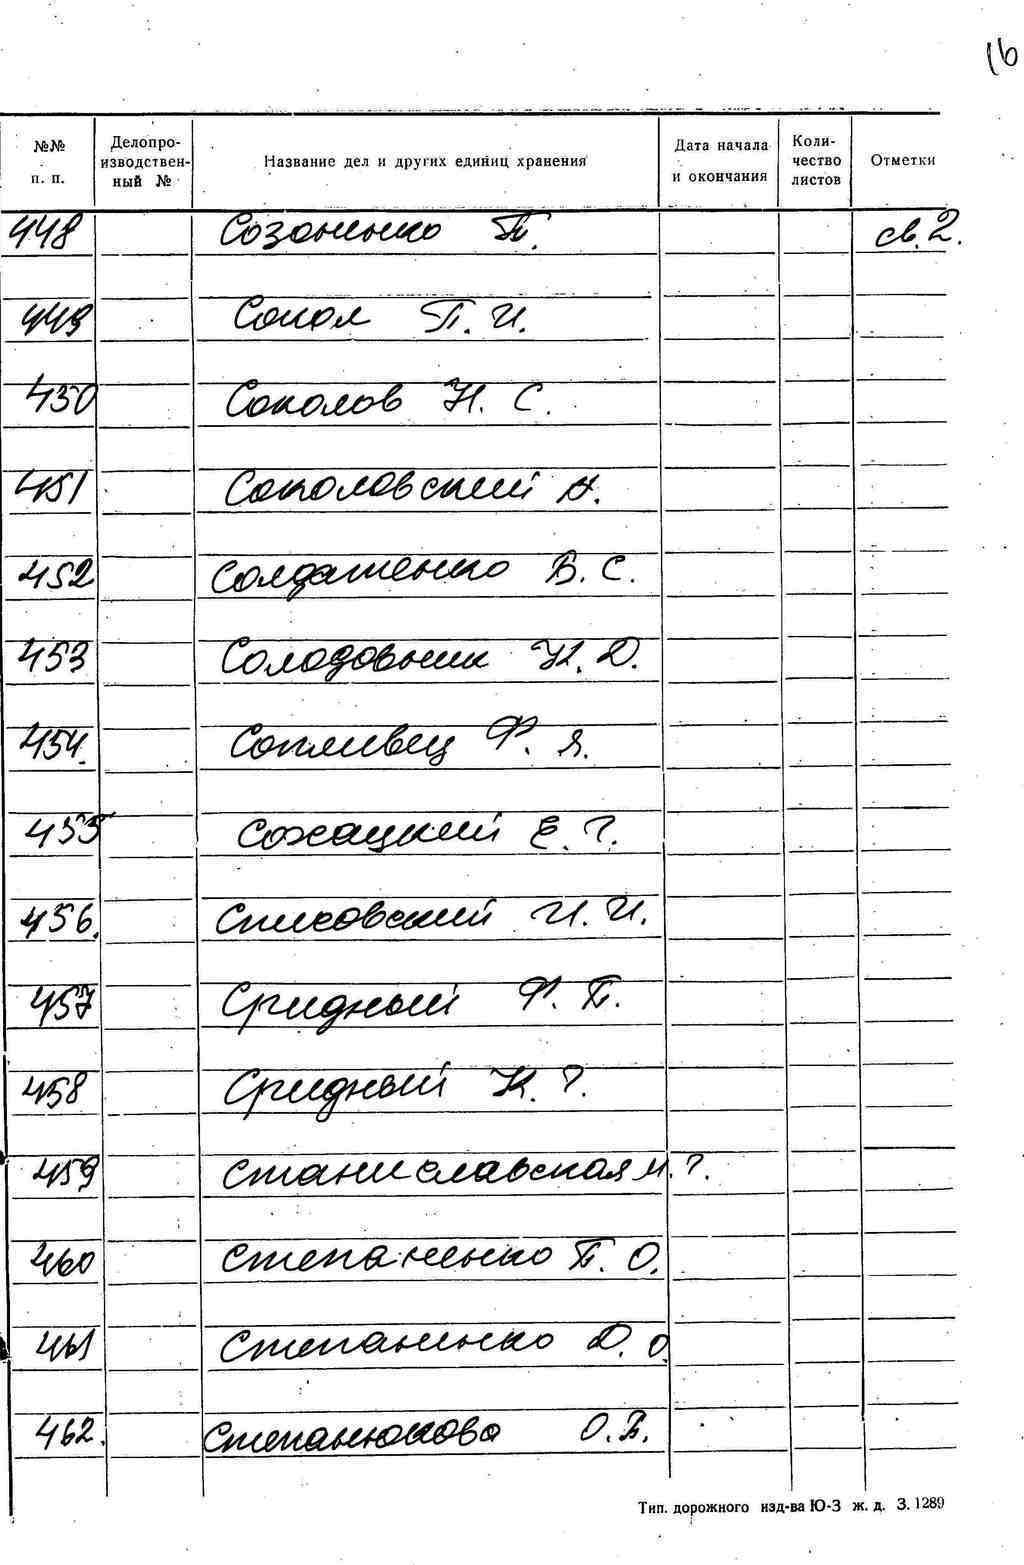 16
№№ п. п. Делопроизводственный № Название дел и других единиц хранения Дата начала и окончания Количество листов Отметки
448 Созоненко П. св. 2.
449 Сокол П. И.
450 Соколов Н. С.
451 Соколовский А.
452 Солдатенко В. С.
453 Солодовник И. Д.
454. Сопливец Ф. Я.
455 Сохацкий Е. Г.
456. Списовский И. И.
457 Сридный Ф. П.
458 Сридный К. Г.
459 Станиславская М. Г.
460 Степаненко П. О.
461 Степаненко Д. О
462. Степанюкова О. В.
Тип. дорожного изд-ва Ю-З ж. д. З. 1289